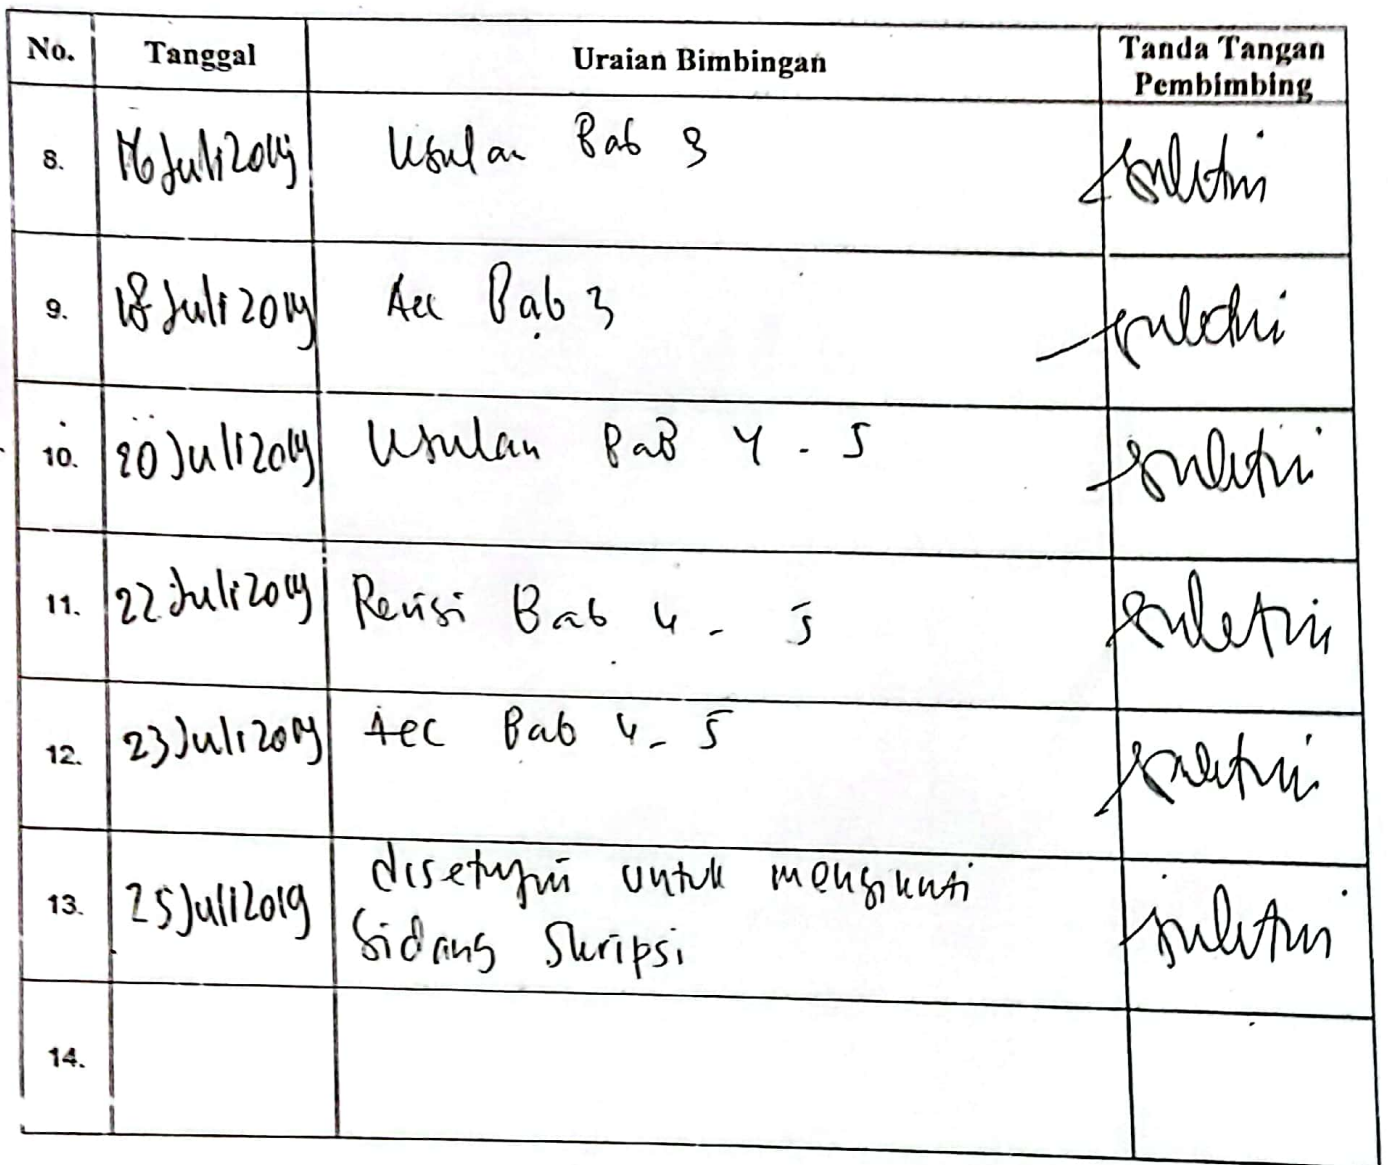 No. Tanggal Uraian Bimbingan Tanda Tangan
Pembimbing
8. 16 Juli 2019 Usulan Bab 3
9. 18 Juli 2019 Acc Bab 3
10. 20 Juli 2019 Usulan BaB 4 - 5
11. 22 Juli 2019 Revisi Bab 4 - 5
12. 23 Juli 2019 Acc Bab 4 - 5
13. 25 Juli 2019 disetujui untuk mengikuti
Sidang Skripsi
14.